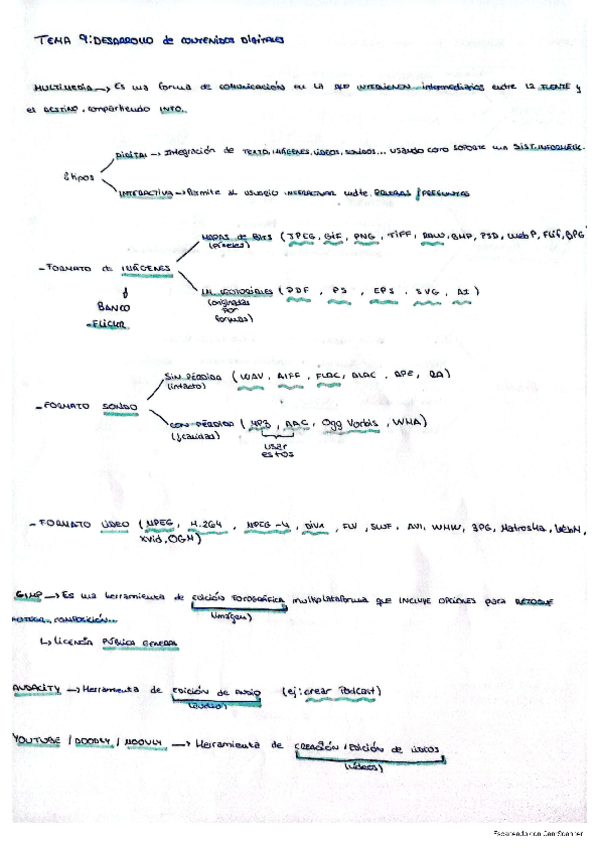 TEMA 9: DESARROLLO de CONTENIDOS DIGITALES
MULTIMEDIA → Es una forma de comunicación en la que intervienen intermediarios entre la FUENTE y
el DESTINO, compartiendo INFO.
2 tipos
DIGITAL → Integración de TEXTO, IMÁGENES, VÍDEOS, SONIDOS... usando como soporte un SIST. INFORMÁTIC.
INTERACTIVA → Permite al usuario interactuar mdte. PRUEBAS / PREGUNTAS
- FORMATO de IMÁGENES
MAPAS de BITS (JPEG, GIF, PNG, TIFF, RAW, BMP, PSD, WebP, Flif, BPG
(píxeles)
IM. VECTORIALES (PDF, PS, EPS, SVG, AI)
(originadas
por
formas)
BANCO
- FLICKR
- FORMATO SONIDO
SIN PÉRDIDA (WAV, AIFF, FLAC, ALAC, APE, RA)
(intacto)
CON PÉRDIDA (MP3, AAC, Ogg Vorbis, WMA)
usar
estos
- FORMATO VÍDEO (MPEG, H.264, MPEG-4, DivX, FLV, SWF, AVI, WMW, 3PG, Matroska, WebN,
Xvid, OGM)
GIMP → Es una herramienta de edición fotográfica multiplataforma que INCLUYE OPCIONES para RETOQUE
COMPOSICIÓN...
(imágen)
↳ licencia PÚBLICA GENERAL
AUDACITY → Herramienta de edición de AUDIO (ej: crear Podcast)
(audio)
YOUTUBE / DOODLY / MOOVLY → Herramienta de CREACIÓN / Edición de VÍDEOS
(vídeos)
Escaneado con CamScanner